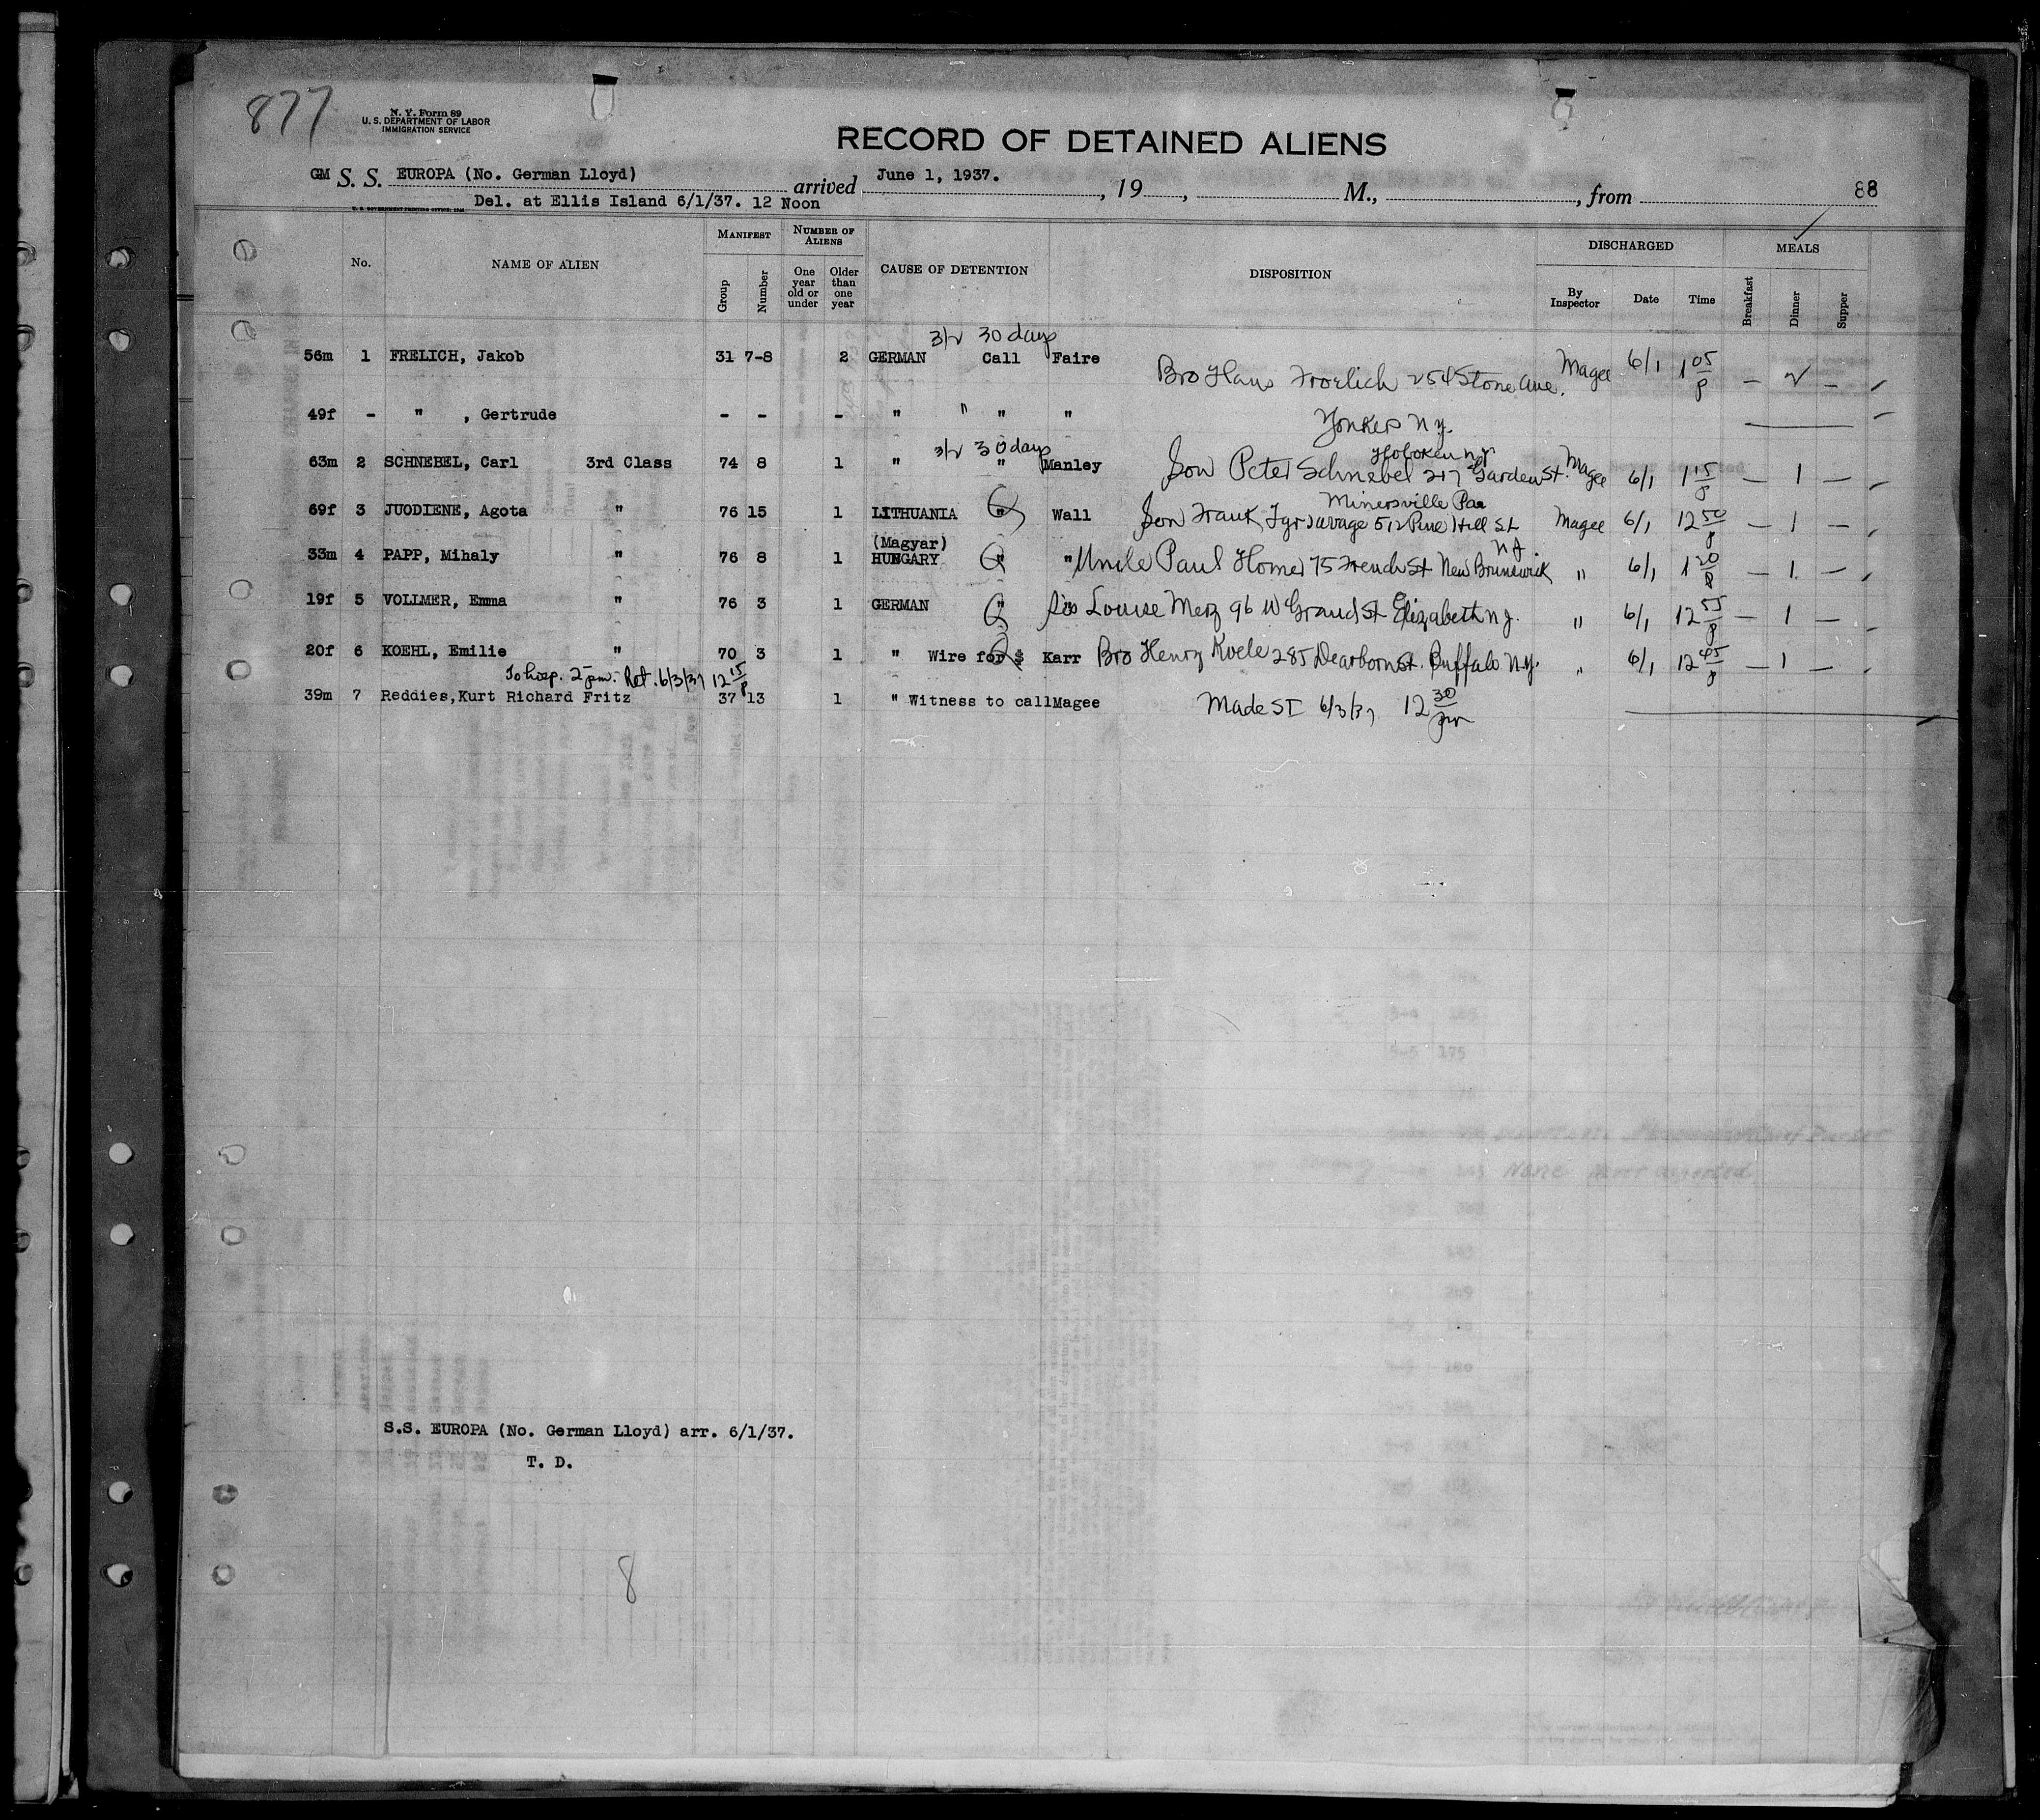 877
N. Y. Form 89
U. S. DEPARTMENT OF LABOR
IMMIGRATION SERVICE
RECORD OF DETAINED ALIENS
GM S. S. EUROPA (No. German Lloyd) arrived June 1, 1937. , 19 , M., , from 88
Del. at Ellis Island 6/1/37. 12 Noon
No. NAME OF ALIEN MANIFEST Group Number NUMBER OF ALIENS One year old or under Older than one year CAUSE OF DETENTION DISPOSITION DISCHARGED By Inspector Date Time MEALS Breakfast Dinner Supper
30 days
56m 1 FRELICH, Jakob 31 7-8 2 GERMAN Call Faire Bro Hans Froelich 254 Stone Ave. Magee 6/1 1 05 P — 2 —
49f - " , Gertrude - - - " " " " Yonkers N.Y.
30 days Hoboken NJ
63m 2 SCHNEBEL, Carl 3rd Class 74 8 1 " " Manley Son Peter Schnebel 217 Garden St. Magee 6/1 1 15 P — 1 —
Minersville Paa
69f 3 JUODIENE, Agota " 76 15 1 LITHUANIA " Wall Son Frank 512 Pine Hill St Magee 6/1 12 50 P — 1 —
(Magyar) NJ
33m 4 PAPP, Mihaly " 76 8 1 HUNGARY " " Uncle Paul 75 French St New Brunswick " 6/1 1 20 P — 1 —
19f 5 VOLLMER, Emma " 76 3 1 GERMAN " Sis Louise Merz 96 W Grand St Elizabeth NJ. " 6/1 12 55 P — 1 —
20f 6 KOEHL, Emilie " 70 3 1 " Wire for $ Karr Bro Henry Koele 285 Dearborn St. Buffalo N.Y. " 6/1 12 45 P — 1 —
To hosp. 2 pm. Ret. 6/3/37 12 15 P
39m 7 Reddies,Kurt Richard Fritz 37 13 1 " Witness to call Magee Made SI 6/3/37 12 30 pm
S.S. EUROPA (No. German Lloyd) arr. 6/1/37.
T. D.
8